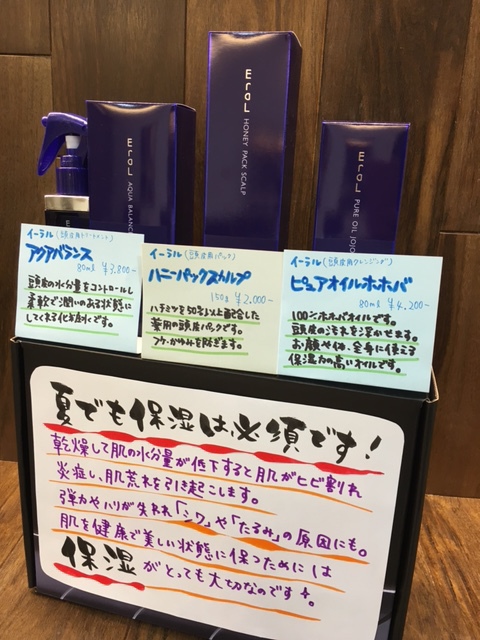 Eral
AQUA BALANC
Eral
HONEY PACK SCALP
Eral
PURE OIL JOJO
イーラル(頭皮用トリートメント)
アクアバランス
80ml ¥3,800-
頭皮の水分量をコントロールし
柔軟で潤いのある状態に
してくれる化粧水です。
イーラル(頭皮用パック)
ハニーパックスカルプ
150g ¥2,000-
ハチミツを50%以上配合した
薬用の頭皮パックです。
フケ・かゆみを防ぎます。
イーラル(頭皮用クレンジング)
ピュアオイルホホバ
80ml ¥4,200-
100%ホホバオイルです。
頭皮の汚れを浮かせます。
お顔や体、全身に使える
保湿力の高いオイルです。
夏でも保湿は、必須です!
乾燥して肌の水分量が低下すると肌がヒビ割れ
炎症し、肌荒れを引き起こします。
弾力やハリが失われ「シワ」や「たるみ」の原因にも。
肌を健康で美しい状態に保つためには
保湿がとっても大切なのです。